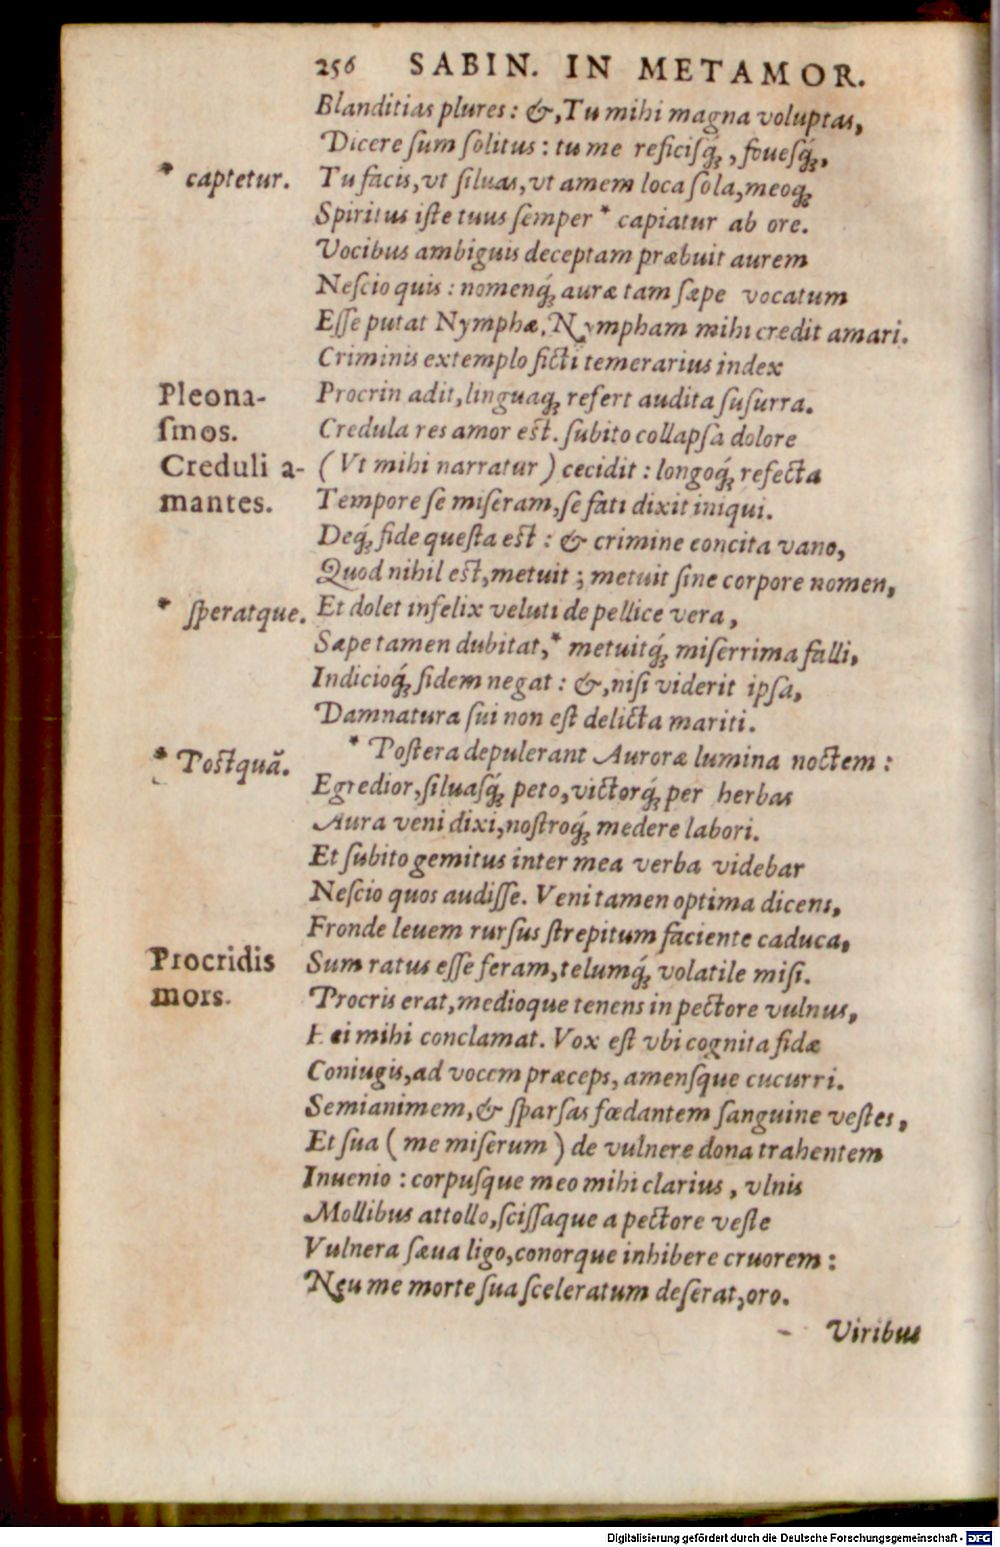 256 SABIN. IN METAMOR.
Blanditias plures: &, Tu mihi magna voluptas,
Dicere ſum ſolitus: tu me reficisq́;, foueſq́;,
* captetur. Tu facis, vt ſiluas, vt amem loca ſola, meoq;
Spiritus iſte tuus ſemper * capiatur ab ore.
Vocibus ambiguis deceptam præbuit aurem
Neſcio quis: nomenq́; auræ tam ſæpe vocatum
Eſſe putat Nymphæ, Nympham mihi credit amari.
Criminis extemplo ficti temerarius index
Pleona- Procrin adit, linguaq; refert audita ſuſurra.
ſmos. Credula res amor eſt. ſubito collapſa dolore
Creduli a- (Vt mihi narratur) cecidit: longoq́; refecta
mantes. Tempore ſe miſeram, ſe fati dixit iniqui.
Deq́; fide queſta eſt: & crimine concita vano,
Quod nihil eſt, metuit; metuit ſine corpore nomen,
* ſperatque. Et dolet infelix veluti de pellice vera,
Sæpe tamen dubitat, * metuitq́; miſerrima falli,
Indicioq́; fidem negat: &, niſi viderit ipſa,
Damnatura ſui non eſt delicta mariti.
* Poſtquā. * Poſtera depulerant Auroræ lumina noctem:
Egredior, ſiluaſq́; peto, victorq́; per herbas
Aura veni dixi, noſtroq́; medere labori.
Et ſubito gemitus inter mea verba videbar
Neſcio quos audiſſe. Veni tamen optima dicens,
Fronde leuem rurſus ſtrepitum faciente caduca,
Procridis Sum ratus eſſe feram, telumq́; volatile miſi.
mors. Procris erat, medioque tenens in pectore vulnus,
Hei mihi conclamat. Vox eſt vbi cognita fidæ
Coniugis, ad vocem præceps, amenſque cucurri.
Semianimem, & ſparſas fœdantem ſanguine veſtes,
Et ſua (me miſerum) de vulnere dona trahentem
Inuenio: corpuſque meo mihi clarius, vlnis
Mollibus attollo, ſciſſaque a pectore veſte
Vulnera ſæua ligo, conorque inhibere cruorem:
Neu me morte ſua ſceleratum deſerat, oro.
Viribus
Digitalisierung gefördert durch die Deutsche Forschungsgemeinschaft - DFG